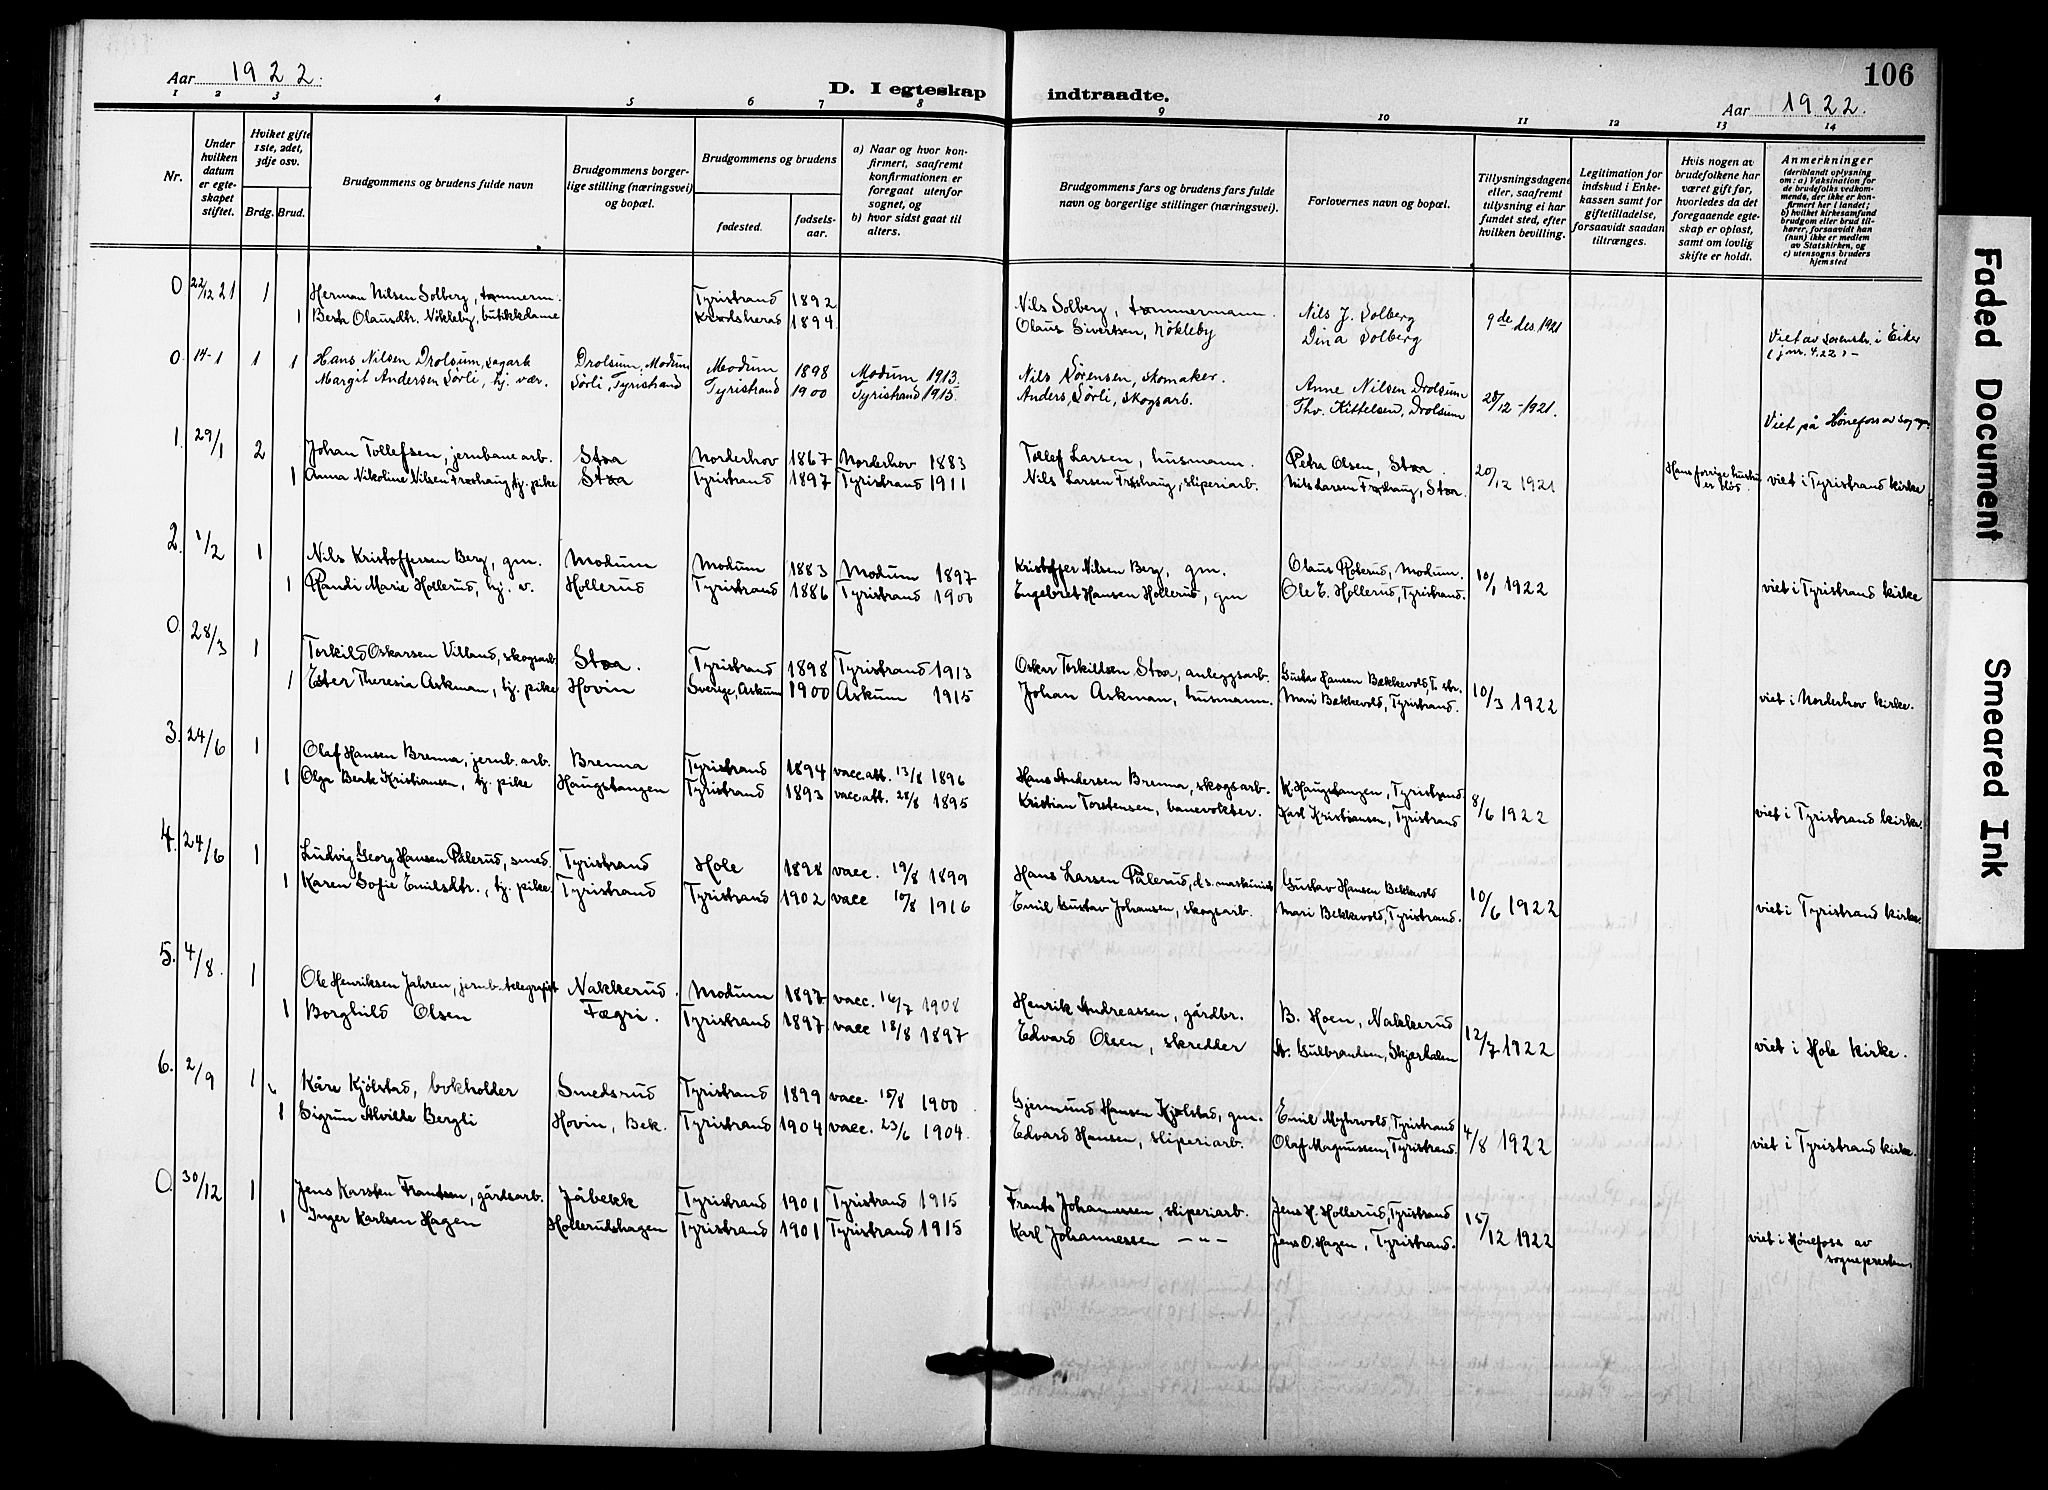 106
Aar 1922.
D. I egteskap indtraadte.
Aar 1922.
1 2 3 4 5 6 7 8 9 10 11 12 13 14
Nr.
Under hvilken datum er egteskapet stiftet.
Hviket gifte 1ste, 2det, 3dje osv.
Brdg. Brud.
Brudgommens og brudens fulde navn
Brudgommens borgerlige stilling (næringsvei) og bopæl.
Brudgommens og brudens
fødested. fødselsaar.
a) Naar og hvor konfirmert, saafremt konfirmationen er foregaat utenfor sognet, og
b) hvor sidst gaat til alters.
Brudgommens fars og brudens fars fulde navn og borgerlige stillinger (næringsvei).
Forlovernes navn og bopæl.
Tillysningsdagene eller, saafremt tillysning ei har fundet sted, efter hvilken bevilling.
Legitimation for indskud i Enkekassen samt for giftetilladelse, forsaavidt saadan tiltrænges.
Hvis nogen av brudefolkene har været gift før, hvorledes da det foregaaende egteskap er opløst, samt om lovlig skifte er holdt.
Anmerkninger (deriblandt oplysning om: a) Vaksination for de brudefolks vedkommende, der ikke er konfirmert her i landet; b) hvilket kirkesamfund brudgom eller brud tilhører, forsaavidt han (hun) ikke er medlem av Statskirken, og c) utensogns bruders hjemsted
0 22/12 21 1 Herman Nilsen Solberg, tømmerm. Tyristrand 1892 Nils Solberg, tømmermann. Nils J. Solberg 9de des. 1921
1 Olausdtr. Nøkleby, butikkdame Krødsherad 1894 Olaus Sivertsen, Nøkleby Dina Solberg Viet av i Eiker (jnr. 422)
0 14-1 1 1 Hans Nilsen Drolsum, sagarb. Drolsum, Modum Modum 1898 Modum 1913 Nils Sørensen, skomaker. Anne Nilsen Drolsum 28/12-1921.
Margit Andersen Sørli, hj. vær. Sørli, Tyristrand Tyristrand 1900 Tyristrand 1915. Anders Sørli, skogsarb. Thv. Kittelsen, Drolsum Viet på Hønefoss av
1. 29/1 2 Johan Tollefsen, jernbanearb. Støa Norderhov 1867 Norderhov 1883 Tollef Larsen, husmann. Petra Olsen, Støa. 20/12 1921 Hans forrige hustru er død.
1 Anna Nikoline Nilsen Frøshaug tj. pike Støa Tyristrand 1897 Tyristrand 1911 Nils Larsen Frøshaug, sliperiarb. Nils Larsen Frøshaug, Støa. viet i Tyristrand kirke
2. 1/2 1 Nils Kristoffersen Berg, gm. Modum Modum 1883 Modum 1897 Kristoffer Nilsen Berg, gm. Olaus Modum. 10/1 1922
1 Randi Marie Hollerud, hj. v. Hollerud Tyristrand 1886 Tyristrand 1900 Engebret Hansen Hollerud, gm Ole E. Hollerud, Tyristrand. viet i Tyristrand kirke
0. 28/3 1 Torkild Oskarsen Villand, skogsarb. Støa. Tyristrand 1898 Tyristrand 1913 Oskar Torkildsen Støa, anleggsarb. Gustav Hansen Bækkevold, T. str. 10/3 1922
1 Ester Theresia Askman, tj. pike Hovin Sverige, Askum 1900 Askum 1915 Johan Askman, husmann. Mari Bækkevold, Tyristrand. viet i Norderhov kirke.
3. 24/6 1 Olaf Hansen Brenna, jernb. arb. Brenna Tyristrand 1894 vacc.att. 13/8 1896 Hans Andersen Brenna, skogsarb. K. Haugstangen, Tyristrand 8/6 1922
1 Olga Berte Kristiansen, tj. pike Haugstangen Tyristrand 1893 vacc att. 28/8 1895 Kristian Torstensen, banevokter. Karl Kristiansen, Tyristrand viet i Tyristrand kirke.
4. 24/6 1 Ludvig Georg Hansen Pålerud, smed. Tyristrand Hole 1898 vacc. 19/8 1899 Hans Larsen Pålerud, d.s. maskinist Gustav Hansen Bekkevold 10/6 1922
1 Karen Sofie Emilsdtr., tj. pike Tyristrand Tyristrand 1902 vacc 10/8 1916 Emil Gustav Johansen, skogsarb. Mari Bekkevold, Tyristrand. viet i Tyristrand kirke
5. 4/8. 1 Ole Henriksen Jahren, jernb. telegrafist Nakkerud. Modum 1897 vacc. 16/7 1908 Henrik Andreassen, gårdbr. B. Hoen, Nakkerud 12/7 1922
1 Borghild Olsen Fægri. Tyristrand 1897 vacc 18/8 1897 Edvard Olsen, skredder St. Gulbrandsen, Skjærdalen viet i Hole kirke.
6. 2/9 1 Kåre Kjølstad, bokholder Smedsrud Tyristrand 1899 vacc. 15/8 1900 Gjermund Hansen Kjølstad, gm. Emil Myhrvold, Tyristrand 4/8 1922
1 Sigrun Alvilde Bergli Hovin, Bek. Tyristrand 1904 vacc. 23/6 1904. Edvard Hansen, sliperiarb. Olaf Magnussen, Tyristrand. viet i Tyristrand kirke.
0. 30/12 1 Jens Karsten Frantsen, gårdsarb. Jåbekk Tyristrand 1901 Tyristrand 1915 Frants Johannessen, sliperiarb. Jens H. Hollerud, Tyristrand 15/12 1922
1 Inger Karlsen Hagen Hollerudshagen Tyristrand 1901 Tyristrand 1915 Karl Johannessen -"- Jens O. Hagen, Tyristrand. viet i Hønefoss av sognepresten
Faded Document
Smeared Ink